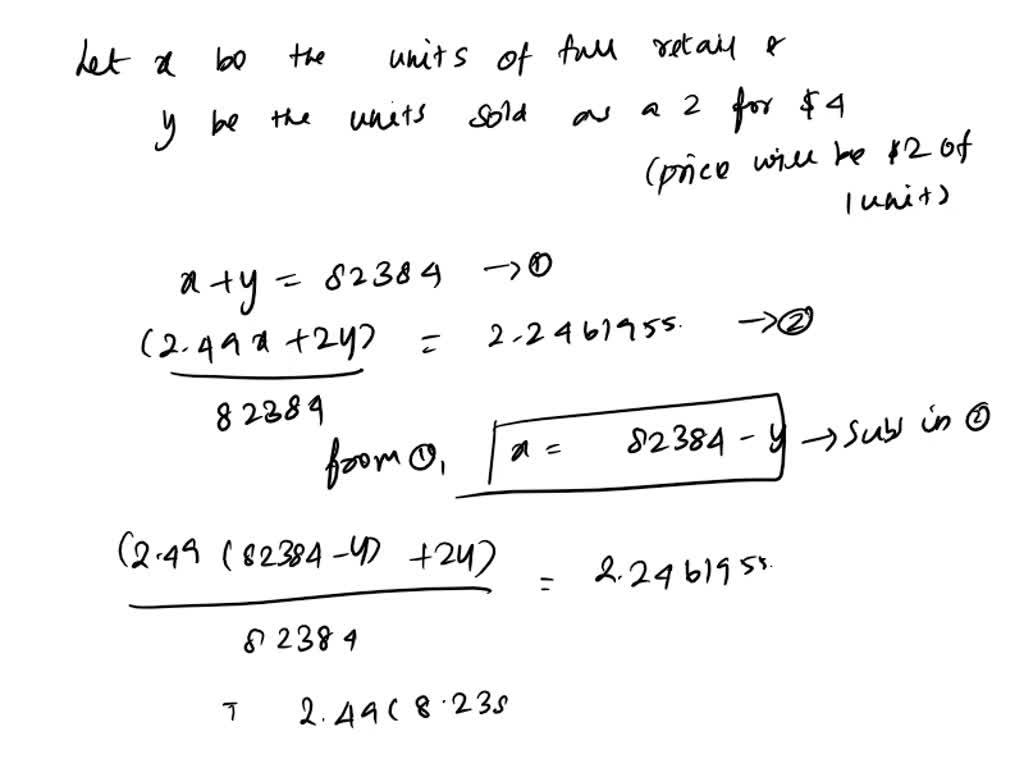 Let x be the units of full retail &
y be the units sold as a 2 for $4
(price will be $2 of
1 unit)
x + y = 82384 → ①
(2.49x + 2y) = 2.2461955. → ②
82384
from ①, x = 82384 - y → Subs in ②
(2.49 (82384 - y) + 2y) = 2.2461955.
82384
2.49 ( 8.238